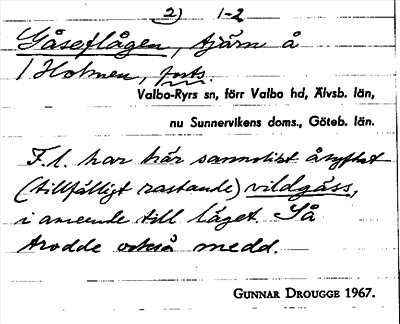 2) 1-2
Gåseflågen, tjärn å
Holmen, forts.
Valbo-Ryrs sn, förr Valbo hd, Älvsb. län,
nu Sunnervikens doms., Göteb. län.
F.l. har här sannolikt åsyftat
(tillfälligt rastande) vildgäss,
i anseende till läget. Så
trodde också medd.
GUNNAR DROUGGE 1967.